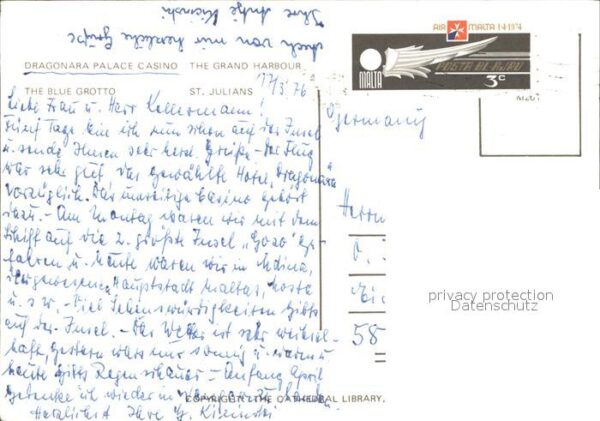 Ihre Antje Kisinski
Auch von mir herzliche Grüße
DRAGONARA PALACE CASINO THE GRAND HARBOUR
THE BLUE GROTTO ST. JULIANS
17/3 76
AIR MALTA 1·4·1974
MALTA POSTE BL-AJRU 3c
Liebe Frau u. Herr Kellermann!
Fünf Tage bin ich nun schon auf der Insel
u. sende Ihnen sehr herzl. Grüße - Der Flug
war sehr gut das gewählte Hotel "Dragonara"
vorzüglich. Das unseitige Casino gehört
dazu. - Am Montag waren wir mit dem
Schiff auf die 2. größte Insel "Gozo" ge-
fahren u. heute waren wir in Mdina,
der gewesenen Hauptstadt Maltas, Mosta
u s w. - Viel Sehenswürdigkeiten gibts
auf der Insel. - Das Wetter ist sehr wechsel-
haft, gestern wars nur sonnig u. warm u
heute gibts Regenschauer - Anfang April
gedenke ich wieder in
Herzlichst Ihre G. Kisinski
Germany
Herrn
58
privacy protection
Datenschutz
COPYRIGHT: THE CATHEDRAL LIBRARY,